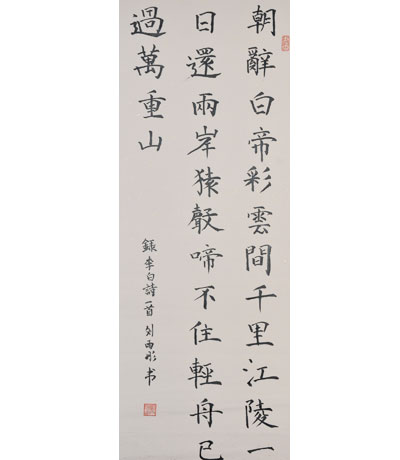 朝辭白帝彩雲間千里江陵一
日還兩岸猿聲啼不住輕舟已
過萬重山
錄李白詩一首 刘雨彤 书